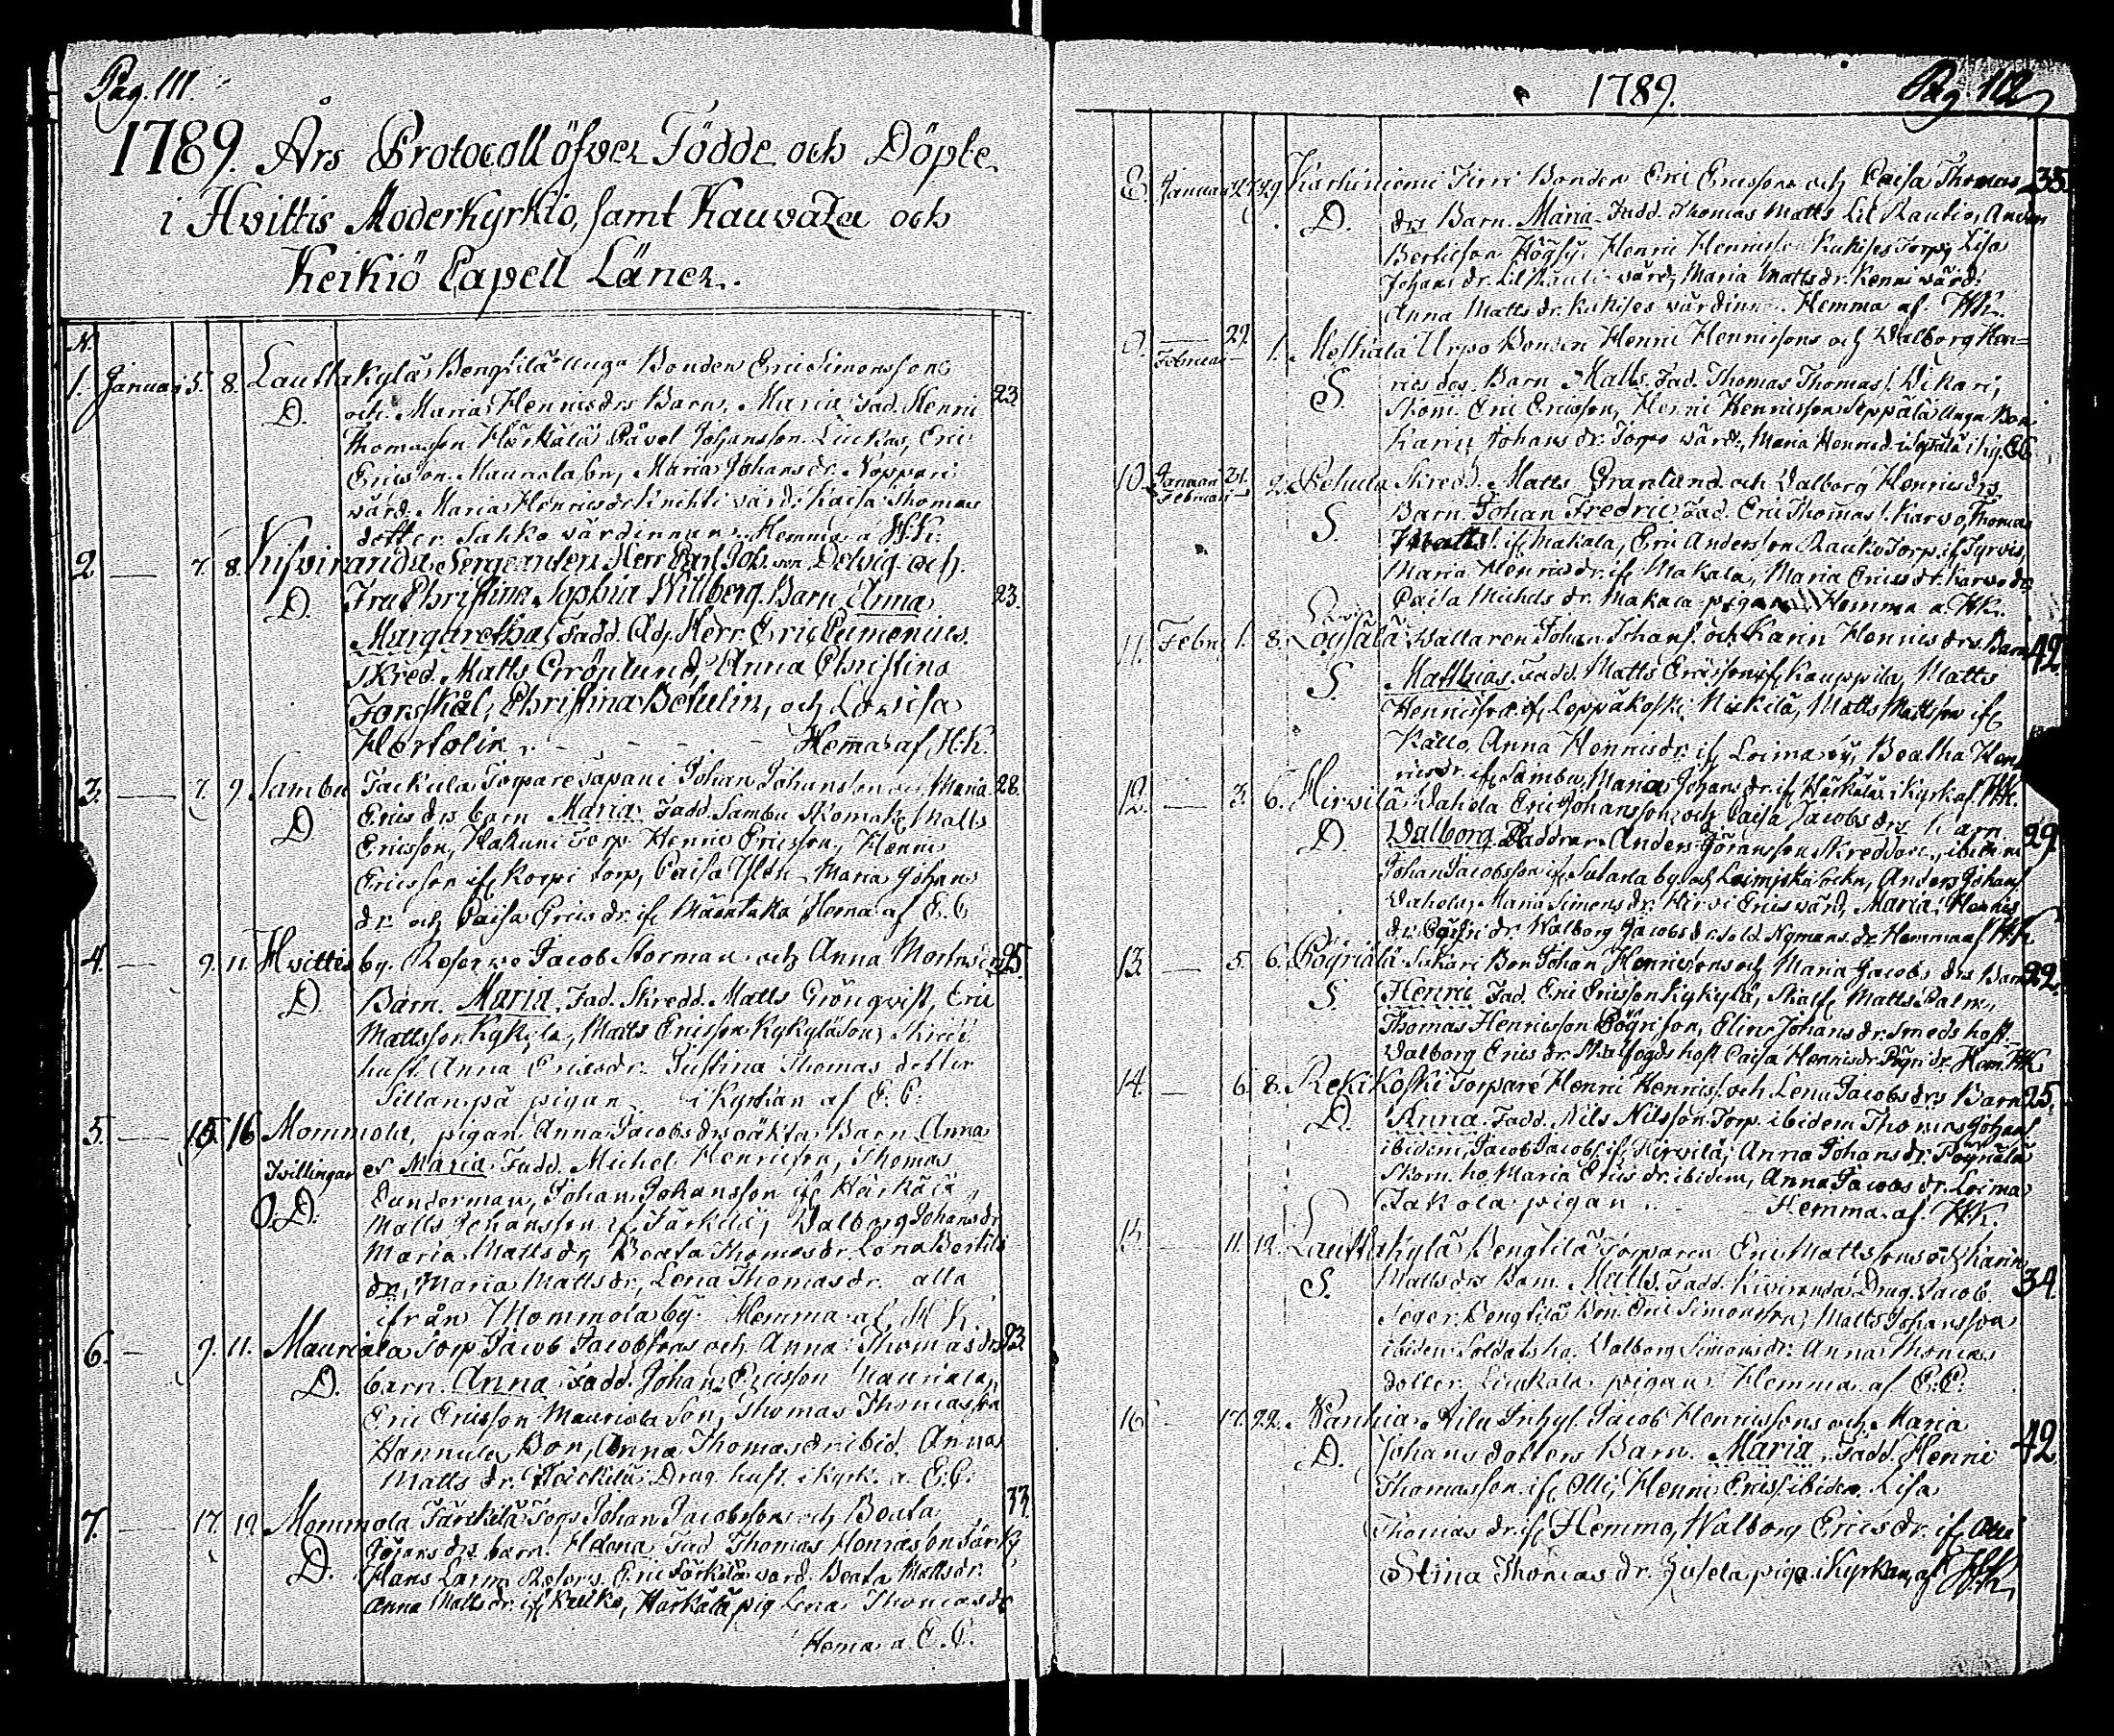 Pag. 111.
1789. Års Protocoll öfver Födde och Döpte
i Hvittis Moderkyrkio, samt Kauvatza och
Keikiö Capell Läner.
N.
1. Januarii 5. 8. Lauttakylä Bengtilä unga Bonden Eric Simonssons
D. och Maria Henricsdrs Barn, Maria Fad. Henric 23
Thomasson Härkälä Påvel Johansson Liukas, Eric
Ericsson Maurialason, Maria Johans dr. Noppari
värd. Maria Henricsdr Knehti värd. Kaisa Thomas
dotter Sahko värdinnan. Hemma a H.K.
2. — 7. 8. Sergeanten Herr Carl Joh. von Delvig och
D. Fru Christina Sophia Willberg. Barn Anna 23.
Margaretha, Fadd. Adj. Herr Eric Eumenius
Skred. Matts Grönlund, Anna Christina
Forsskål, Christina Betulin, och Lovisa
Hertolin. - - - - Hemma af H.K.
3. — 7. 9. Sambu Jackula Torpare Tapani Johan Johansson och Maria 28.
D Erics drs barn Maria. Fadd. Sambu Skomak. Matts
Ericsson, Hakuni Torp. Henric Ericsson, Henric
Ericsson if. Korpi torp, Caisa Maria Johans
dr. och Caisa Erics dr. if. Hema af E. C
4. — 9. 11. Hvittis by. Reserve Jacob Storman och Anna Mortensdrs 25.
D Barn. Maria. Fad. Skredd. Matts Grönqvist, Eric
Mattsson Kykylä, Matts Ericsson Kykyläson, Skred.
hust. Anna Ericsdr. Justina Thomas dotter
Sillanpä pigan i Kyrkan af E. C.
5. — 15. 16 Mommola, pigan Anna Jacobs drs oäkta Barn Anna
Tvillingar et Maria. Fadd. Michel Henricsson, Thomas
D.D. Dunderman, Johan Johansson if. Härkälä,
Matts Johansson if. Järkilä, Valborg Johansdr
Maria Matts dr, Beata Thomasdr. Lena Bertils
dr, Maria Matts dr, Lena Thomasdr. alla
ifrån Mommola by. Hemma af H K.
6. — 9. 11. Mauriala Torp. Jacob Jacobssons och Anna Thomas drs 23.
D. barn. Anna Fadd. Johan Ericsson Mauriala,
Eric Ericsson Mauriala Son, Thomas Thomasson
Hannula Bon, Anna Thomasdr ibid. Anna
Matts dr. Drag. hust. i kyrk. a. E. C.
7. — 17. 19. Mommola Järkilä Torp. Johan Jacobssons och Beata 33.
D. Görans drs barn. Helena. Fad Thomas Henricsson Järk.
Hans Reserv. Eric Järkilä värd. Beata Mattsdr.
Anna Matts dr. if. Härkälä pig Lena Thomasdr
Hema a. E. C.
1789. Pag. 112
8. Januarii 27. 29. Karhiniemi Bonden Eric Ericssons och Caisa Thomas 35.
D. drs Barn. Maria. Fadd. Thomas Matts. Lil Rautio, Anders
Bertilsson Högsy, Henric Henricsson Torp, Lisa
Johans dr. Lil Rautio värd, Maria Matts dr. Kenni värd.
Anna Matts dr. värdinn. Hemma af. HK.
9. — Februari 29. 1. Urpo Bonden Henric Henricssons och Valborg Hen=
S. rics drs. Barn Matts. Fad. Thomas Thomas. Vikari,
Skom. Eric Ericsson, Henric Henricsson Seppälä unga Bon
Karin Johans dr. Torpo värd., Maria Henrics dr. i Seppälä i hig. EC
10. Januari 31. Februari 2. Pehula Skredd. Matts Granlund och Valborg Henricsdrs
S. Barn. Johan Fredric. Fad. Eric Thomas. Karvo, Thomas
Matts. if. Makala, Eric Andersson Rauko Torp. if Tyrvis,
Maria Henrics dr. if. Makala, Maria Erics dr. Karvo do
Caisa Michels dr. Makala pigan. Hemma a HK.
11. Febru. 1. 8. Vallaren Johan Johans. och Karin Henricsdrs. Barn 42
S. Matthias. Fadd. Matts Ericsson if. Kauppila, Matts
Henricsson if. Leppäkoski Nickilä, Matts Mattsson if.
Källo, Anna Henricsdr. if. Loima by, Beatha Hen
rics dr. if. Sambu, Maria Johans dr. if. Härkälä i kyrk af. HK.
12. — 3. 6. Hirvilä Vahola Eric Johansson och Caisa Jacobs drs barn
D. Valborg. Faddrar Anders Göransson Skreddare, ibidem 29.
Johan Jacobsson if. by och Sockn, Anders Johans.
Vahola, Maria Simons dr. Hirvi Erics värd, Maria Henrics
dr. Walborg Jacobs dr. Sold. Nymans. dr. Hemma af HK
13. — 5. 6. Pöyriälä Sukari Bon Johan Henricssons och Maria Jacobs drs Barn 22.
S. Henric. Fad. Eric Ericsson Kykylä, Matts Palm,
Thomas Henricsson Pöyrison, Elin Johans dr. Smeds host.
Valborg Erics dr. host. Caisa Henricsdr. Pöyri dr. Hem. HK
14. — 6. 8. Rekikoski Torpare Henric Henrics. och Lena Jacobs drs Barn 25.
D. Anna. Fadd. Nils Nilsson Torp. ibidem Thomas Johans
ibidem, Jacob Jacobs. if. Hirvilä, Anna Johans dr. Pöyriälä
Skom. ho, Maria Erics dr. ibidem, Anna Jacobs dr. Loima
Jakola pigan. Hemma af. HK.
15. — 11. 12. Lauttakylä Bengtilä Torparen Eric Mattssons och Karin
S. Matts drs Barn. Matts. Fadd. Drag. Jacob 34.
Seger, Bengtilä Bon. Eric Simonsson, Matts Johansson
ibidem Soldats ho. Valborg Simons dr. Anna Thomas
dotter pigan. Hemma af E. C.
16. — 17. 22. Nanhia, Aila Inhys. Jacob Henricssons och Maria
D. Johans dotters Barn. Maria. Fadd. Henric 42
Thomasson if. Olli, Henric Erics. ibidem. Lisa
Thomas dr. if. Hemmo, Walborg Erics dr. if. Olli
Stina Thomas dr. piga. i Kyrkan, af HK